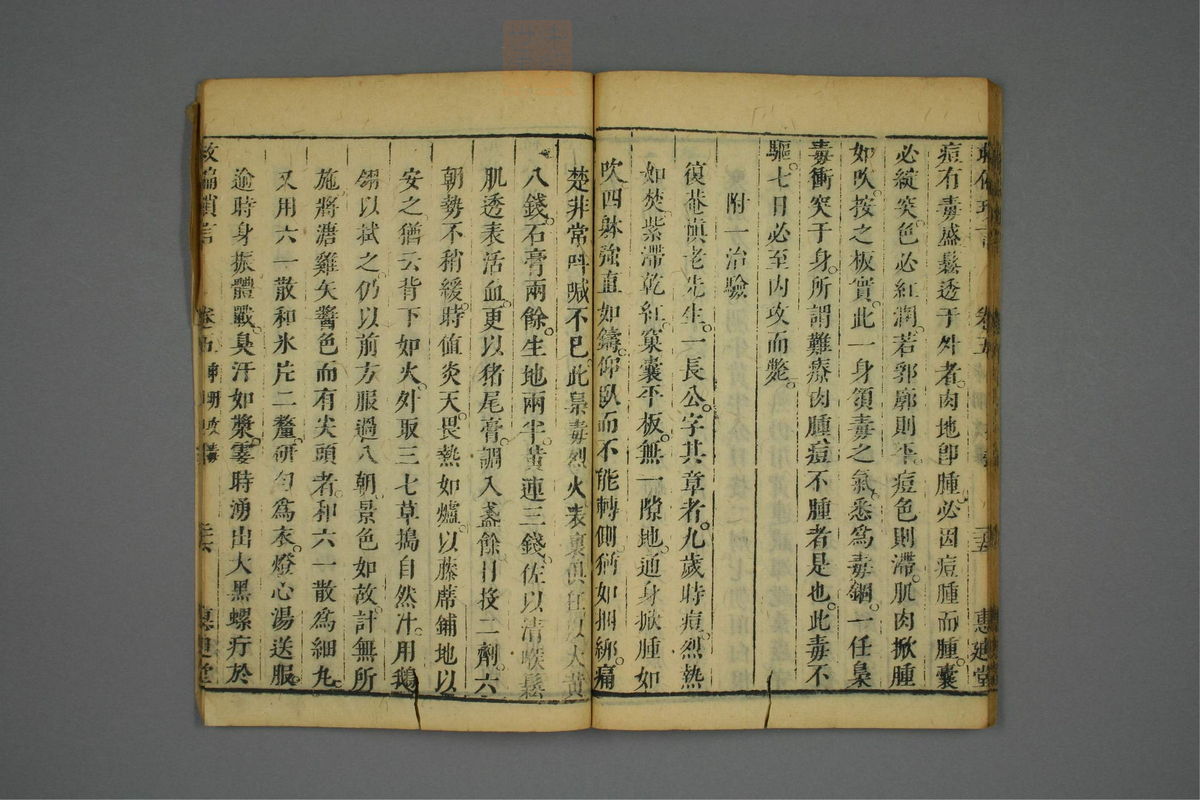 痘有毒盛鬆透于外者肉地卽腫必因痘腫而腫囊
必綻突色必紅潤若郭廓則平痘色則滯肌肉掀腫
如吹按之板實此一身領毒之氣悉爲毒錮一任梟
毒衝突于身所謂難療肉腫痘不腫者是也此毒不
驅七日必至内攻而斃
附一治驗
復菴慎老先生一長公字其章者九歲時痘烈熱
如焚紫滯乾紅窠囊平板無一隙地通身掀腫如
吹四躰強直如鑄仰臥而不能轉側猶如捆綁痛
楚非常呌喊不已此梟毒烈火表裏俱 大黄
八錢石膏兩餘生地兩半黄連三錢佐以清喉鬆
肌透表活血更以猪尾膏調入盞餘日投二劑六
朝勢不稍緩時值炎天畏熱如爐以藤蓆鋪地以
安之猶云背下如火外取三七草搗自然汁用鵝
翎以拭之仍以前方服過八朝景色如故計無所
施將溏雞矢醬色而有尖頭者和六一散爲細丸
又用六一散和氷片二釐研勻爲衣燈心湯送服
逾時身振體戰臭汗如漿霎時湧出大黑螺疔於
卷五
惠迪堂